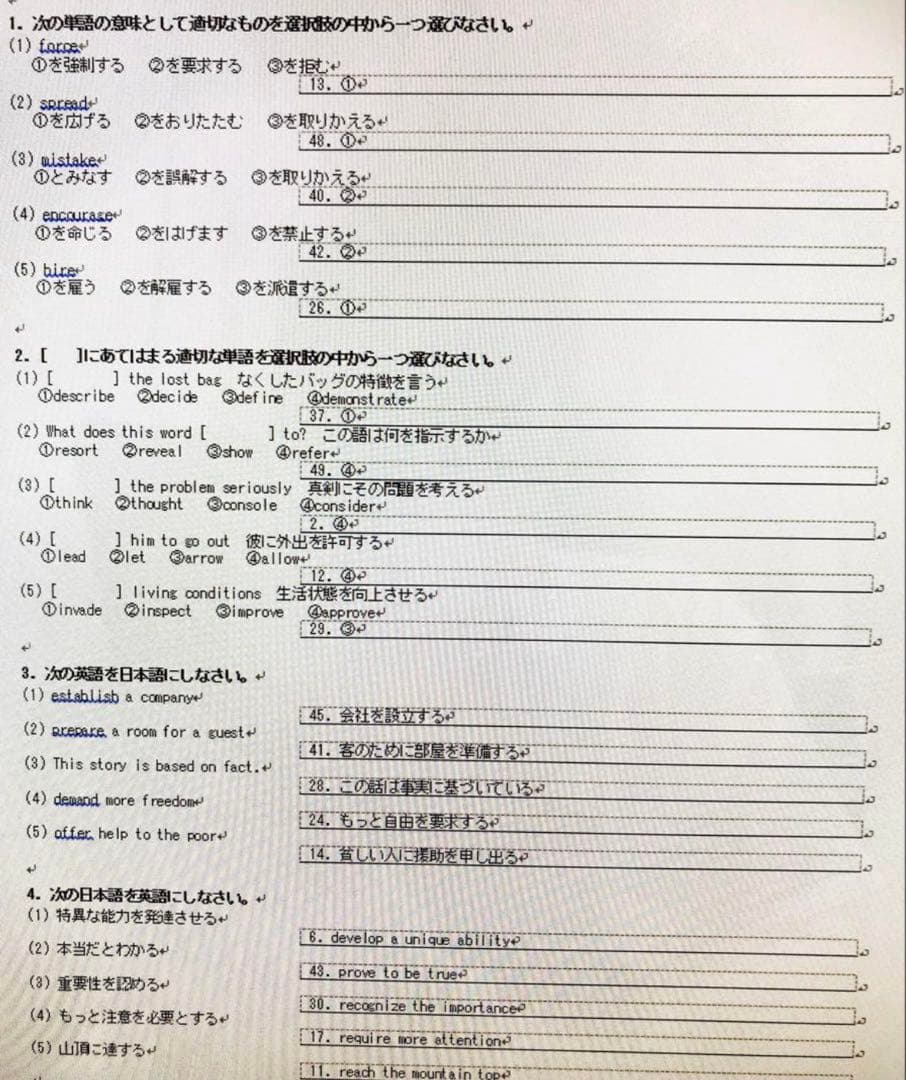 1．次の単語の意味として適切なものを選択肢の中から一つ選びなさい。
(1) force
①を強制する　②を要求する　③を拒む
13. ①
(2) spread
①を広げる　②をおりたたむ　③を取りかえる
48. ①
(3) mistake
①とみなす　②を誤解する　③を取りかえる
40. ②
(4) encourage
①を命じる　②をはげます　③を禁止する
42. ②
(5) hire
①を雇う　②を解雇する　③を派遣する
26. ①
2．[　　]にあてはまる適切な単語を選択肢の中から一つ選びなさい。
(1) [　　　] the lost bag　なくしたバッグの特徴を言う
①describe　②decide　③define　④demonstrate
37. ①
(2) What does this word [　　　] to?　この語は何を指示するか
①resort　②reveal　③show　④refer
49. ④
(3) [　　　] the problem seriously　真剣にその問題を考える
①think　②thought　③console　④consider
2. ④
(4) [　　　] him to go out　彼に外出を許可する
①lead　②let　③arrow　④allow
12. ④
(5) [　　　] living conditions　生活状態を向上させる
①invade　②inspect　③improve　④approve
29. ③
3．次の英語を日本語にしなさい。
(1) establish a company
45. 会社を設立する
(2) prepare a room for a guest
41. 客のために部屋を準備する
(3) This story is based on fact.
28. この話は事実に基づいている
(4) demand more freedom
24. もっと自由を要求する
(5) offer help to the poor
14. 貧しい人に援助を申し出る
4．次の日本語を英語にしなさい。
(1) 特異な能力を発達させる
6. develop a unique ability
(2) 本当だとわかる
43. prove to be true
(3) 重要性を認める
30. recognize the importance
(4) もっと注意を必要とする
17. require more attention
(5) 山頂に達する
11. reach the mountain top